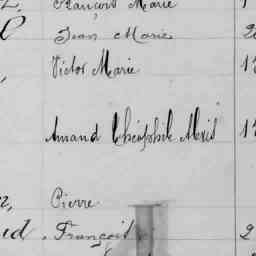 François Marie
Jean Marie 2
Victor Marie 1
Amand Théophile Alexis 1
Pierre
ud, François 2